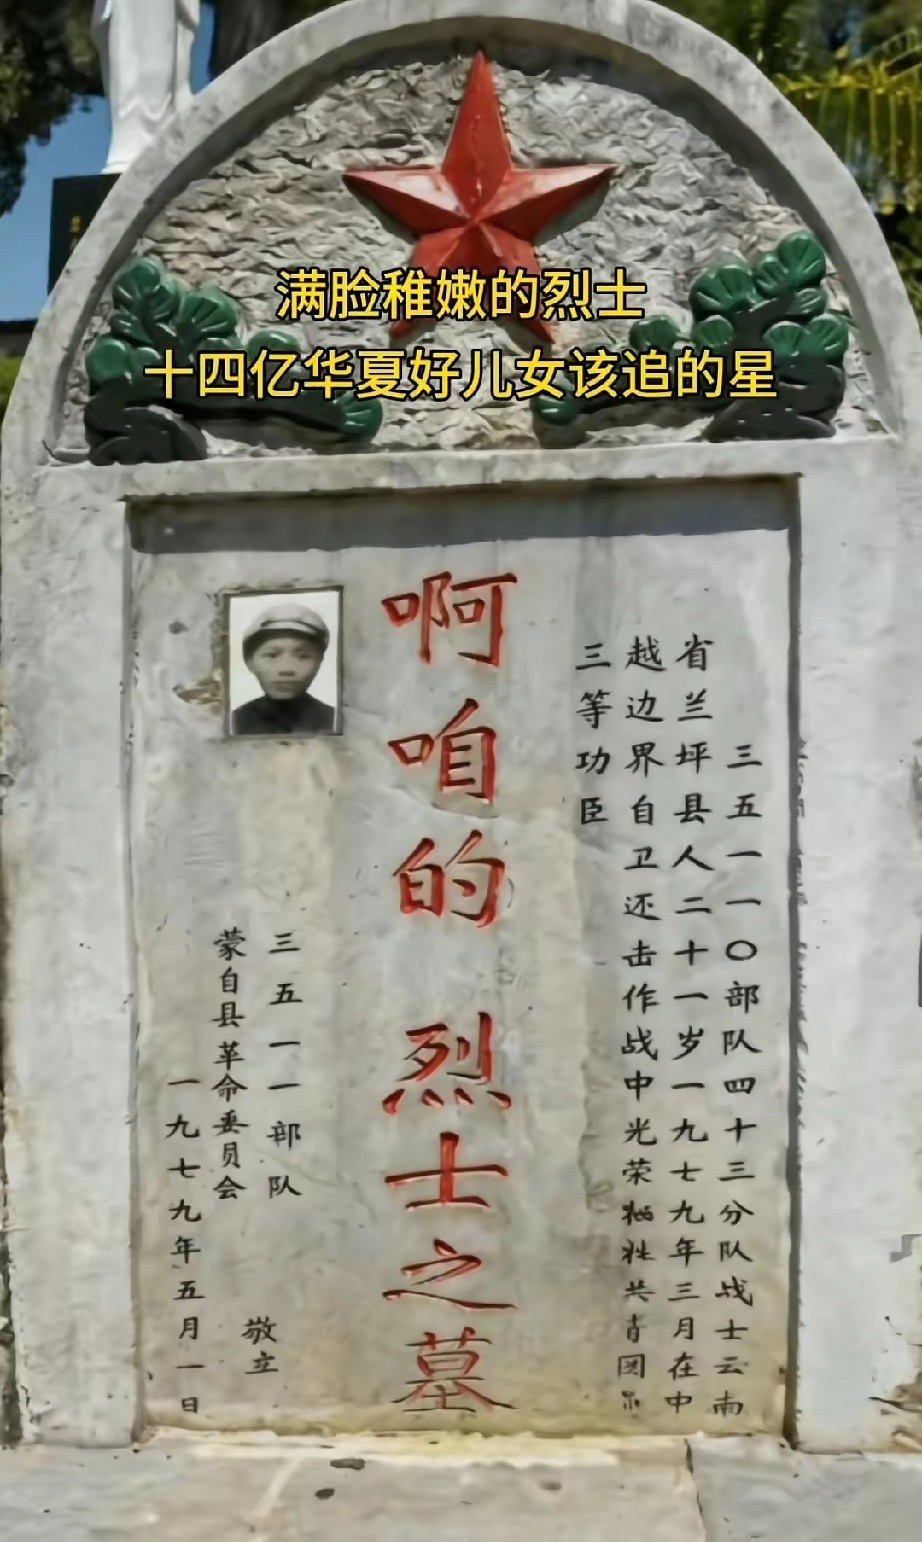 满脸稚嫩的烈士
十四亿华夏好儿女该追的星
三五一一〇部队四十三分队战士云南
省兰坪县人二十一岁一九七九年三月在中
越边界自卫还击作战中光荣牺牲共青团
三等功臣
啊咱的 烈士之墓
三五一一部队
蒙自县革命委员会
敬立
一九七九年五月一日